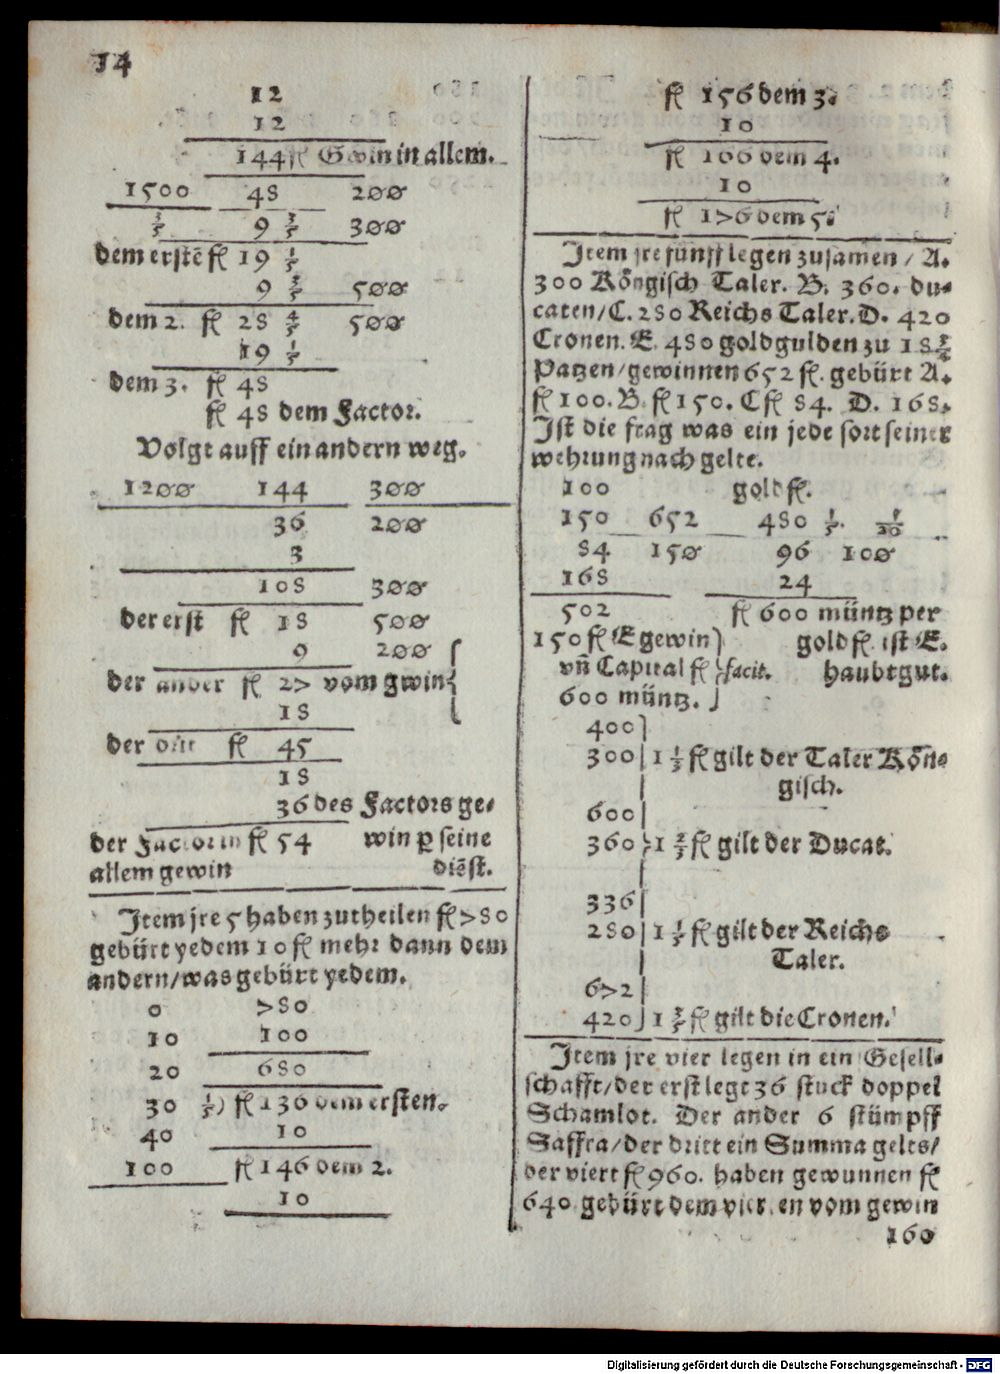 14
12
12
144 fl Gwin in allem.
1500 48 200
3/5 9 3/5 300
dem erstē fl 19 1/5
9 3/5 500
dem 2. fl 28 4/5 500
19 1/5
dem 3. fl 48
fl 48 dem Factor.
Volgt auff ein andern weg.
1200 144 300
36 200
3
108 300
der erst fl 18 500
9 200
der ander fl 27 vom gwin
18
der fl 45
18
36 des Factors ge-
der Factor in fl 54 win p seine
allem gewin diēst.
Item jre 5 haben zutheilen fl 780
gebürt yedem 10 fl mehr dann dem
andern/was gebürt yedem.
0 780
10 100
20 680
30 1/5) fl 136 dem ersten.
40 10
100 fl 146 dem 2.
10
fl 156 dem 3.
10
fl 166 dem 4.
10
fl 176 dem 5.
Item jre fünff legen zusamen/ A.
300 Köngisch Taler. B. 360. du-
caten/C. 280 Reichs Taler. D. 420
Cronen. E. 480 goldgulden zu 18 3/4
Patzen/gewinnen 652 fl. gebürt A.
fl 100. B. fl 150. C fl 84. D. 168.
Ist die frag was ein jede sort seiner
wehrung nach gelte.
100 gold fl.
150 652 480 1/5. 1/20
84 150 96 100
168 24
502 fl 600 müntz per
150 fl E gewin gold fl. ist E.
vñ Capital fl facit. haubtgut.
600 müntz.
400
300 1 1/3 fl gilt der Taler Kön-
gisch.
600
360 1 2/3 fl gilt der Ducat.
336
280 1 1/5 fl gilt der Reichs
Taler.
672
420 1 3/5 fl gilt die Cronen.
Item jre vier legen in ein Gesell-
schafft/der erst legt 36 stuck doppel
Schamlot. Der ander 6 stümpff
Saffra/der dritt ein Summa gelts/
der viert fl 960. haben gewunnen fl
640 gebürt dem vierten vom gewin
160
Digitalisierung gefördert durch die Deutsche Forschungsgemeinschaft - DFG